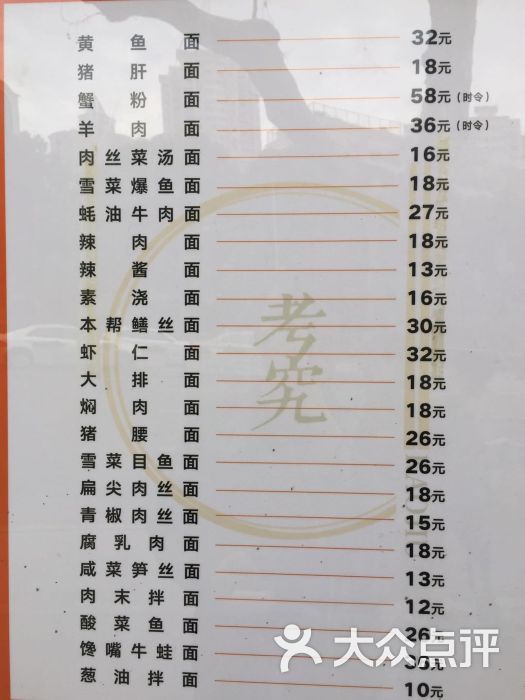 黄鱼面 32元
猪肝面 18元
蟹粉面 58元(时令)
羊肉面 36元(时令)
肉丝菜汤面 16元
雪菜爆鱼面 18元
蚝油牛肉面 27元
辣肉面 18元
辣酱面 13元
素浇面 16元
本帮鳝丝面 30元
虾仁面 32元
大排面 18元
焖肉面 18元
猪腰面 26元
雪菜目鱼面 26元
扁尖肉丝面 18元
青椒肉丝面 15元
腐乳肉面 18元
咸菜笋丝面 13元
肉末拌面 12元
酸菜鱼面 26元
馋嘴牛蛙面
葱油拌面 10元
考究
大众点评